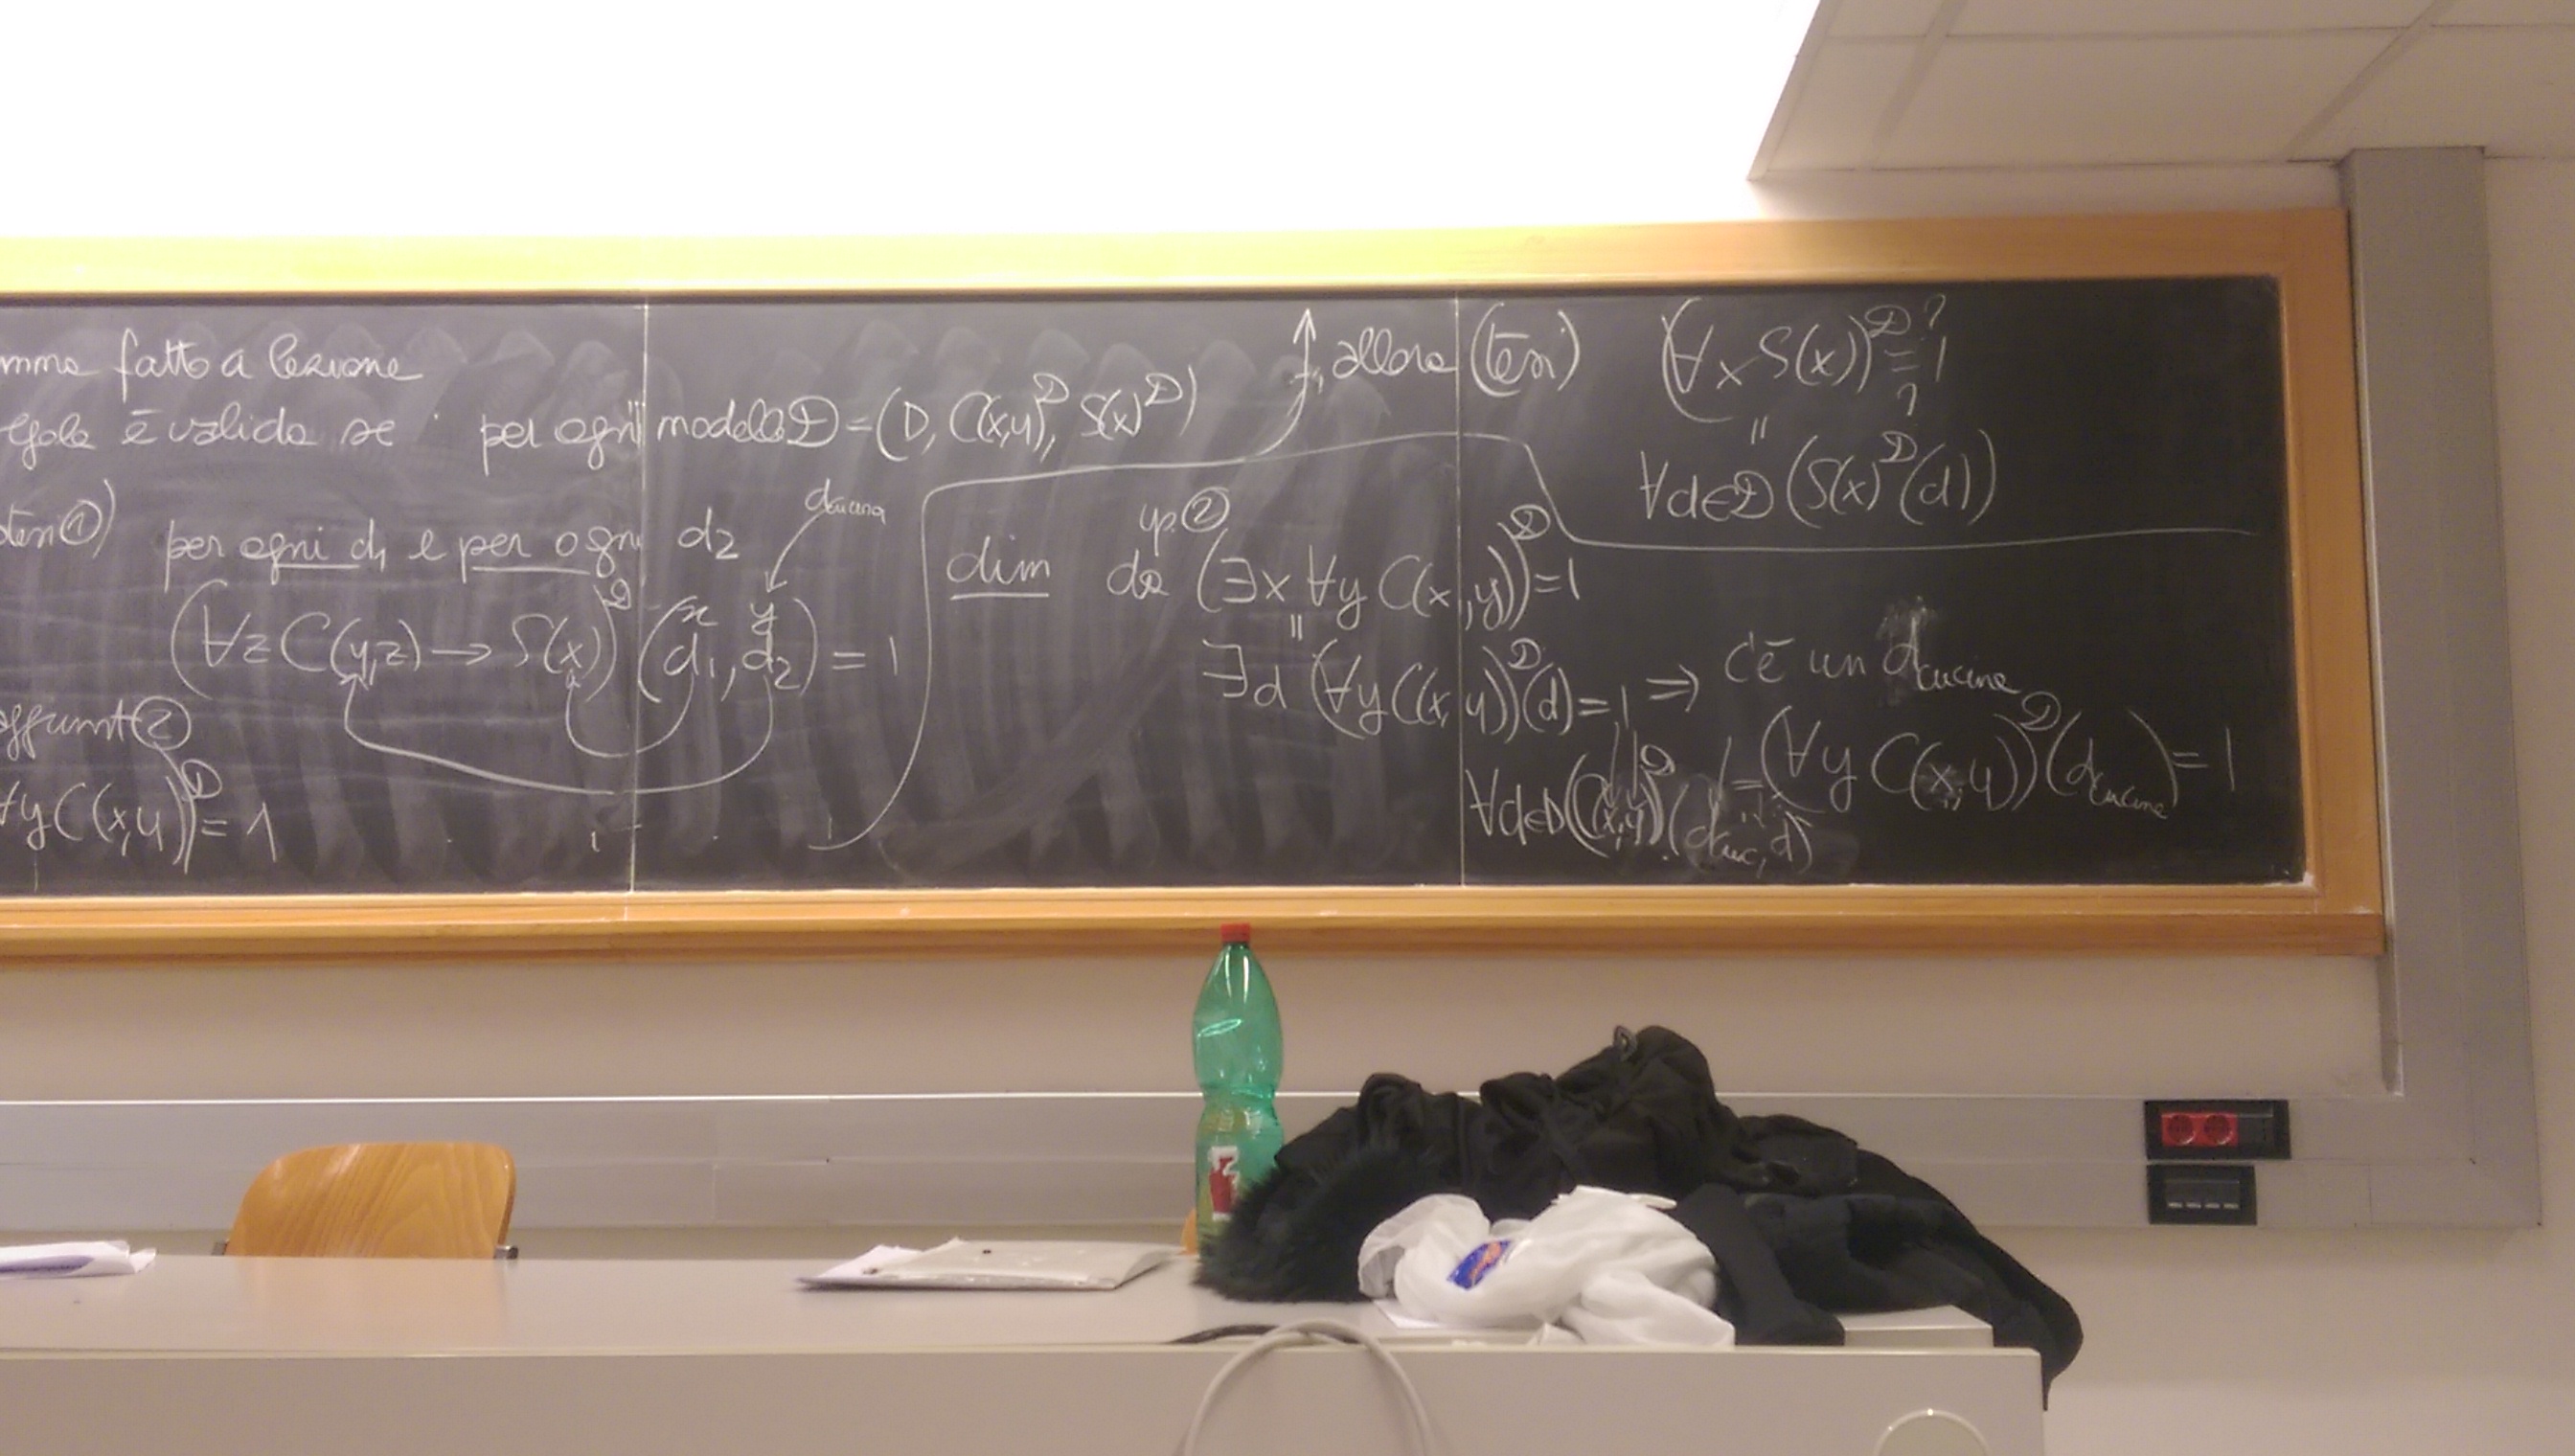 fatto a lezione
è valida se per ogni modello D = (D, C(x,y)^D, S(x)^D)
①) per ogni d1 e per ogni d2
dcucina
(∀z C(y,z) → S(x))^D (d1, d2) = 1
x y
②
∀y C(x,y))^D = 1
allora (tesi) (∀x S(x))^D = 1
?
?
=
∀d∈D (S(x)^D (d))
dim da ip. ② (∃x ∀y C(x,y))^D = 1
=
∃d (∀y C(x,y))^D (d) = 1 ⇒ c'è un dcucina
(∀y C(x,y))^D (dcucina) = 1
∀d∈D (C(x,y))^D (dcuc, d)